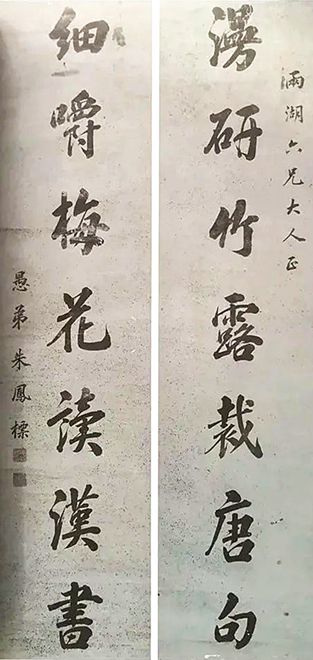 兩湖六兄大人正
漫研竹露裁唐句
細嚼梅花讀漢書
愚弟朱鳳標